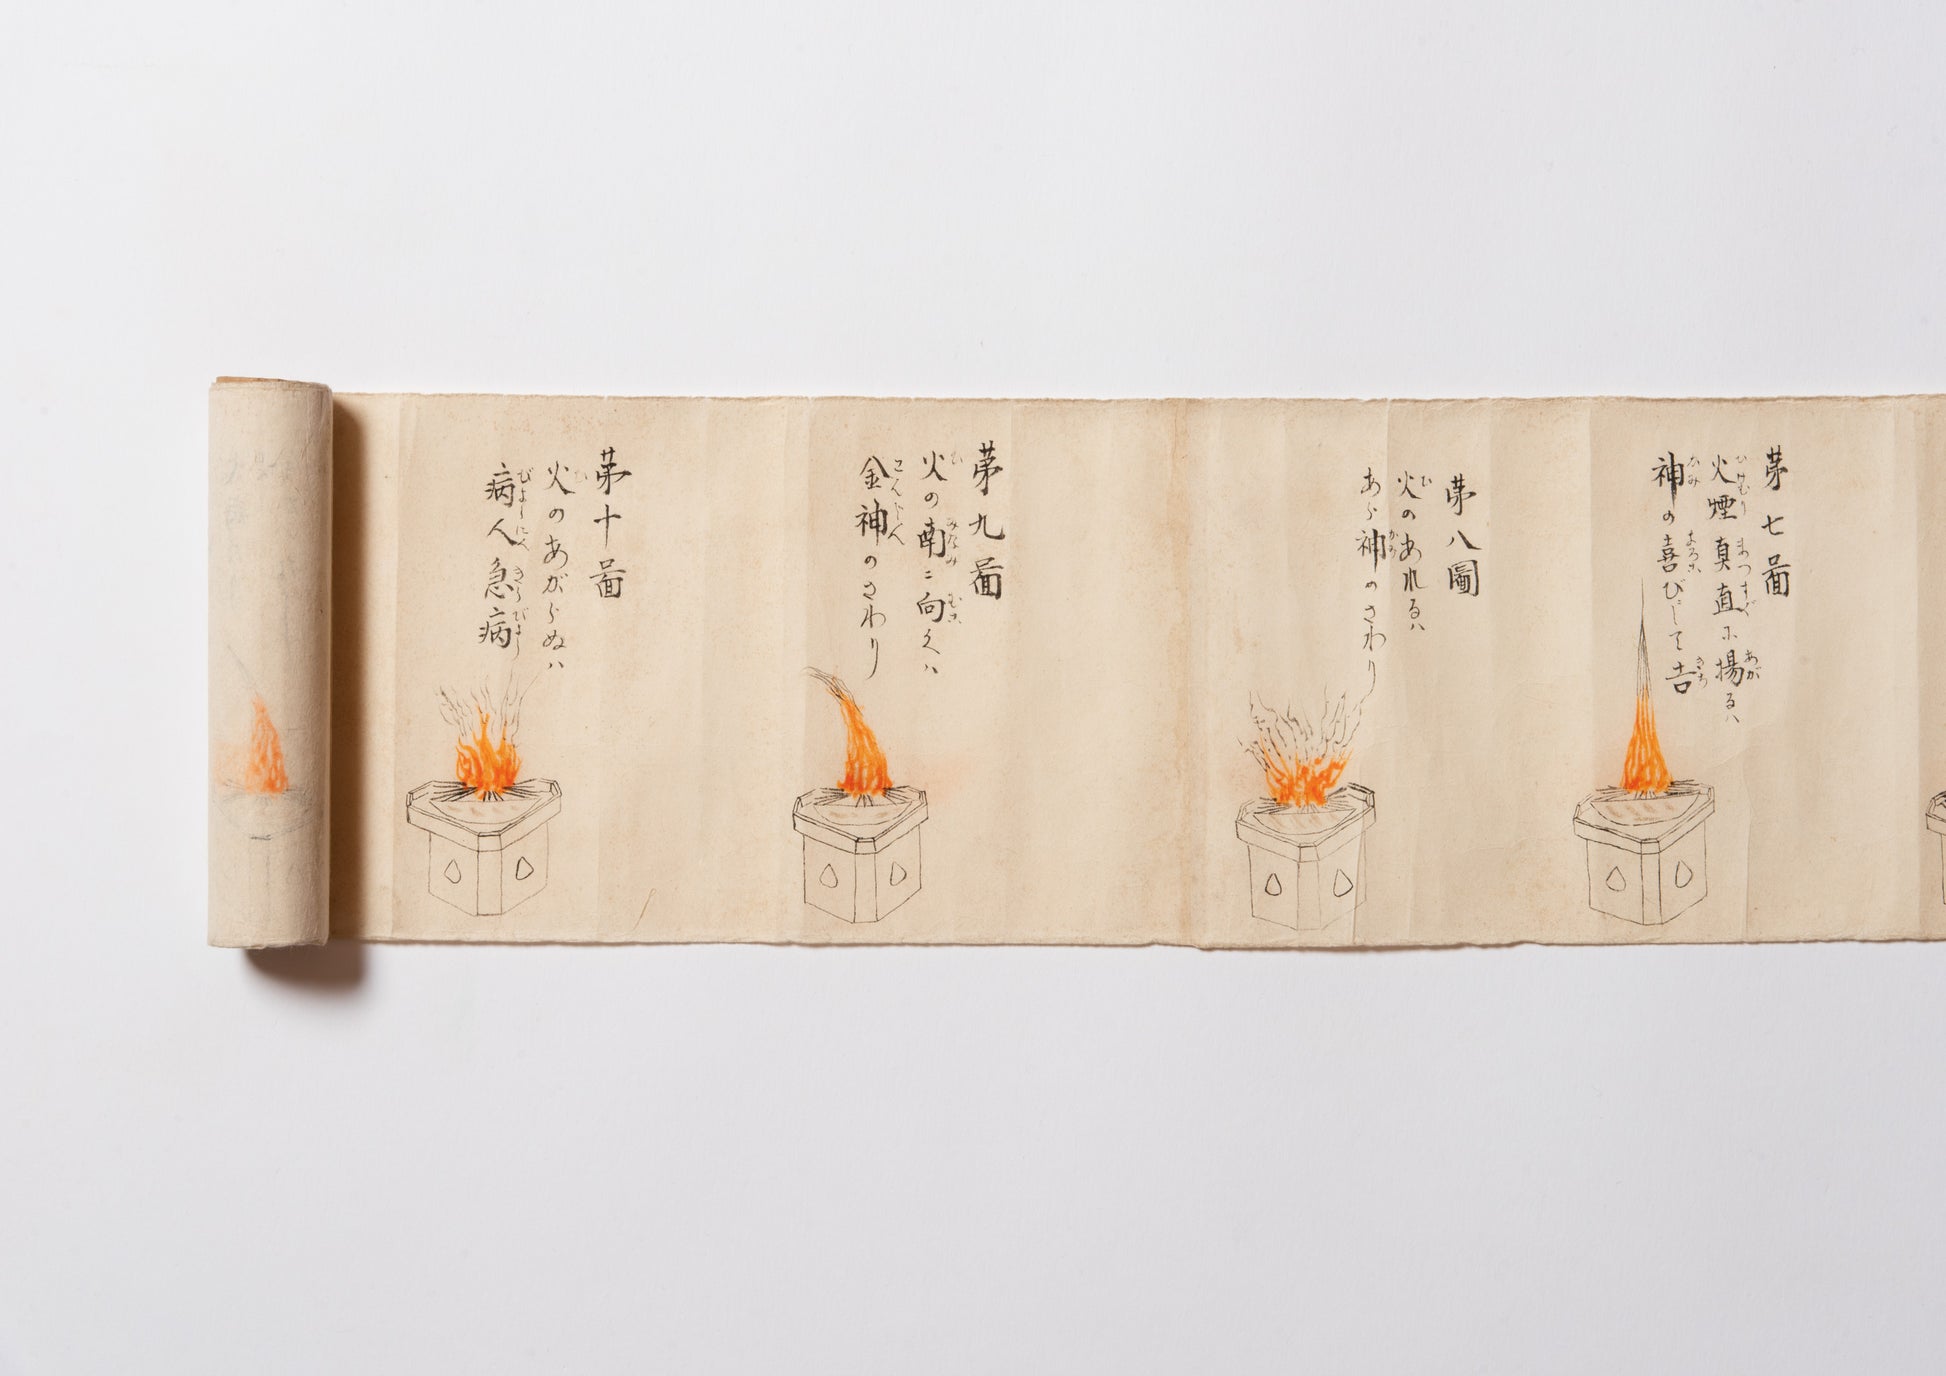 苐七啚
火煙真直尓揚るハ
神の喜びニて吉
苐八圖
火のあれるハ
あら神のさわり
苐九啚
火の南ニ向へハ
金神のさわり
苐十啚
火のあがらぬハ
病人急病